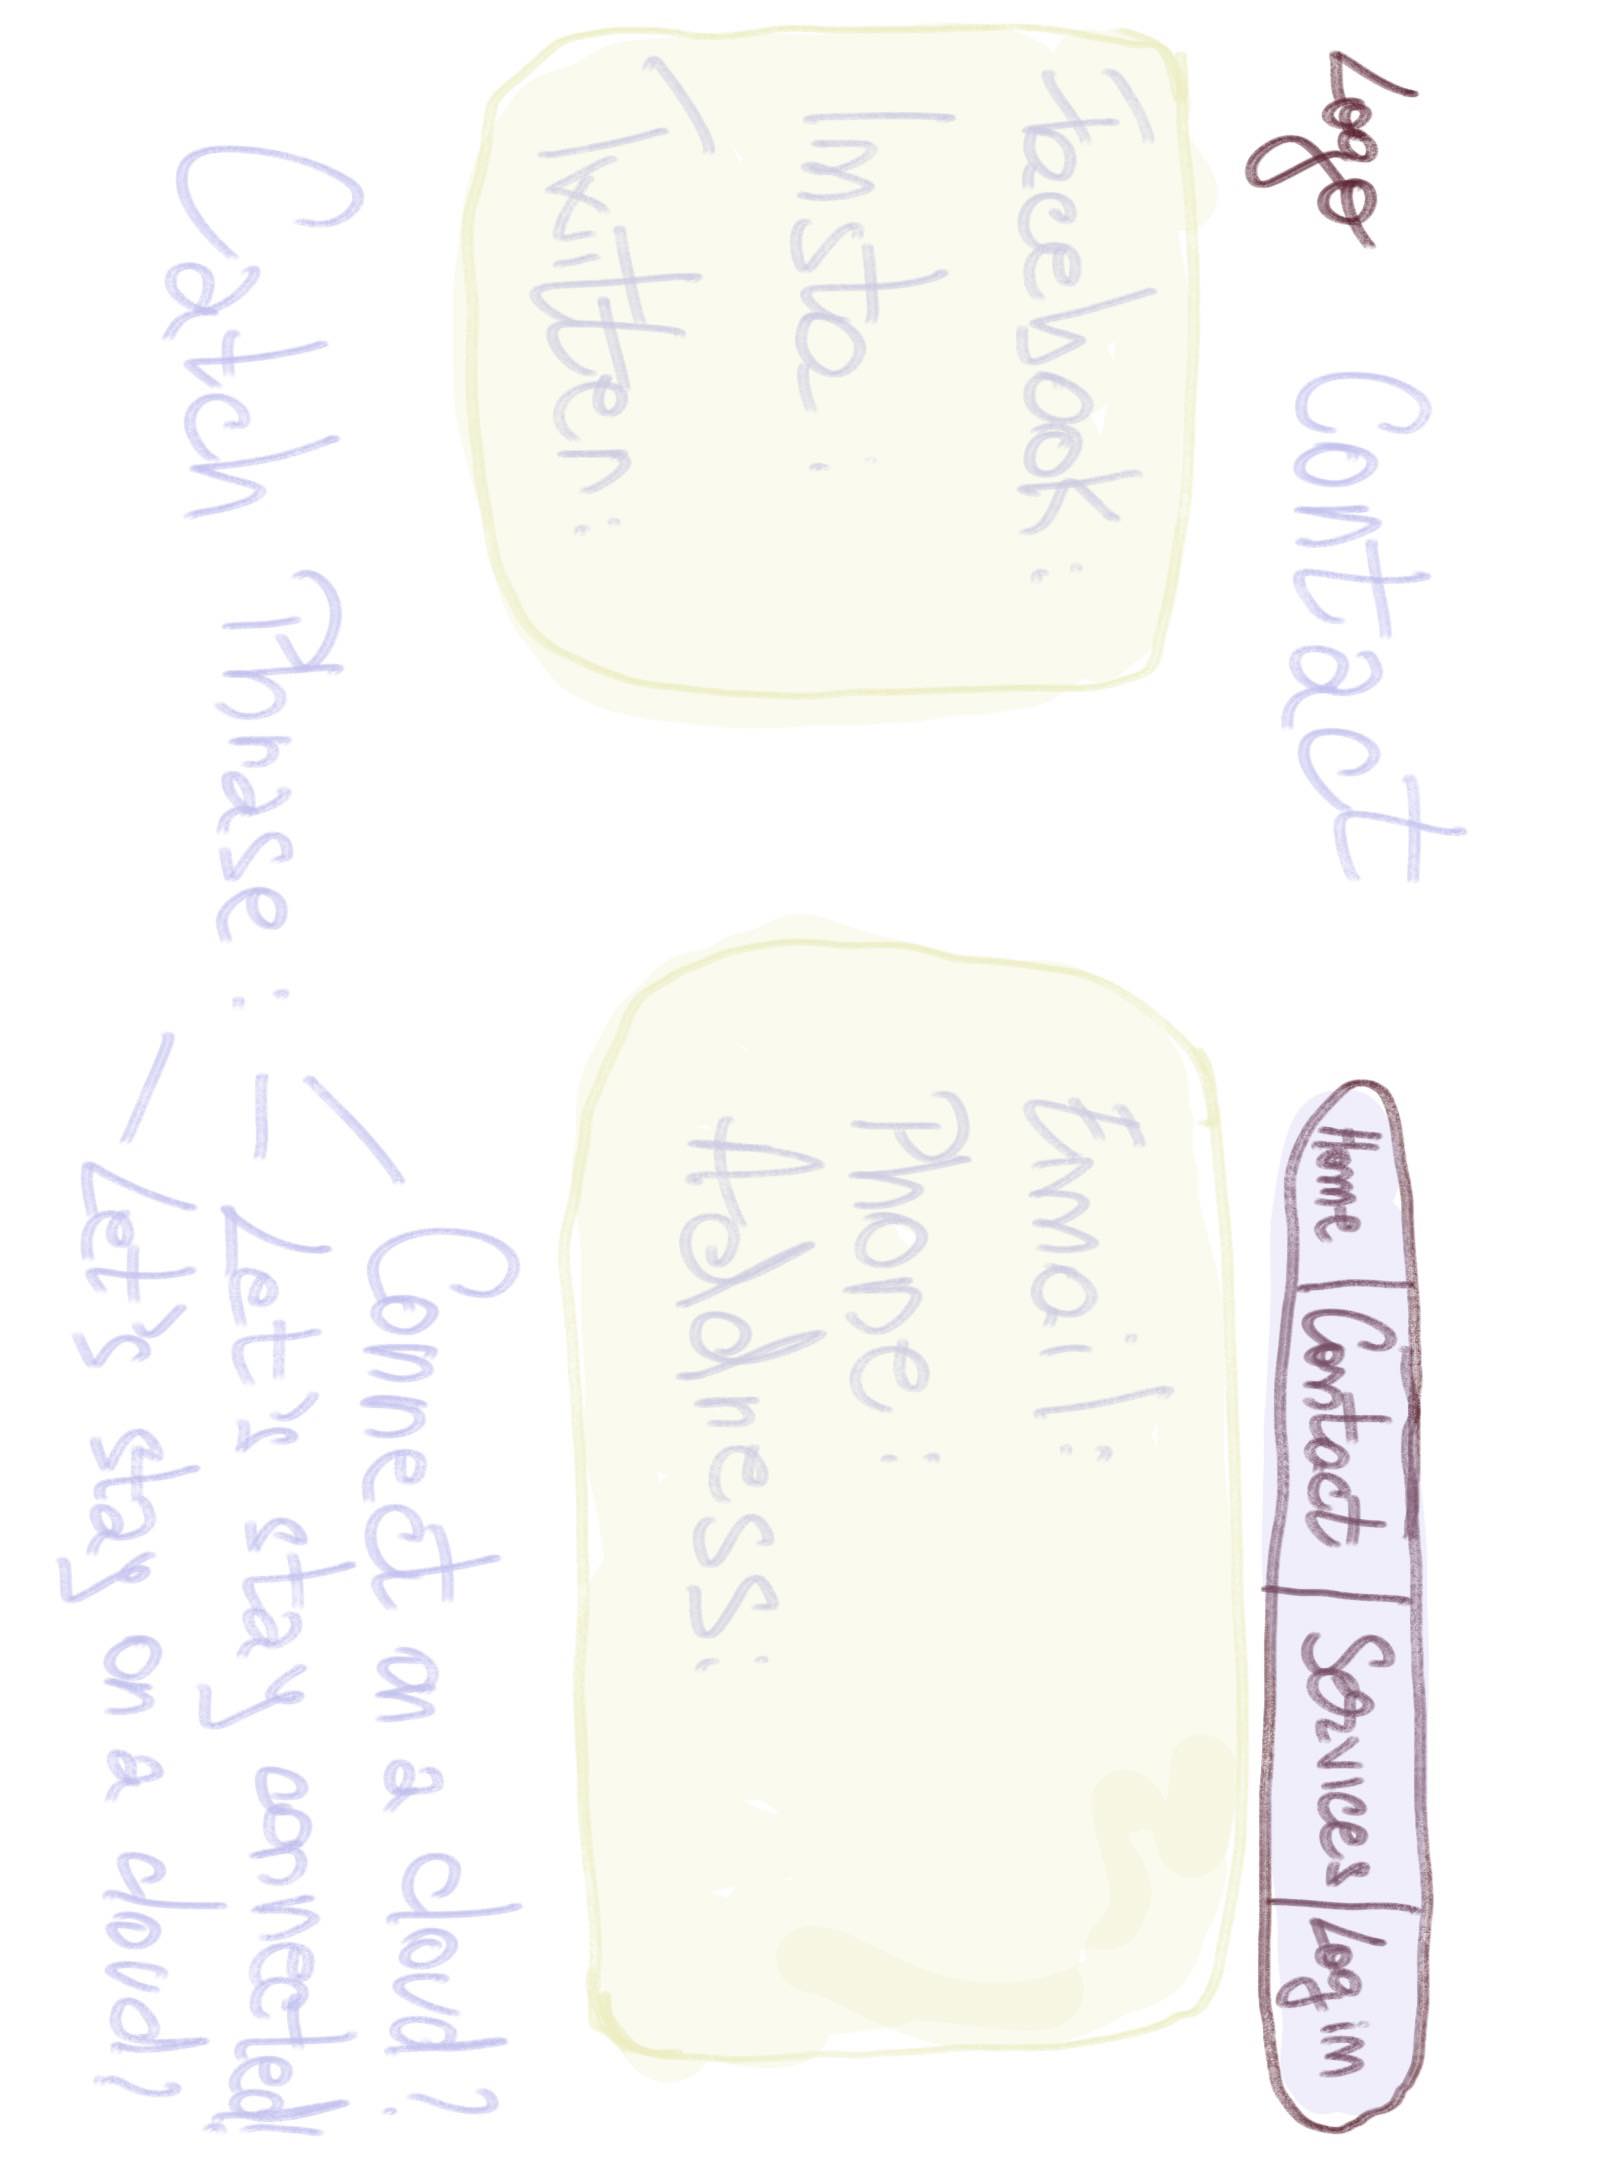 Logo Contact
Home Contact Services Log in
Facebook:
Insta :
Twitter:
Email:
Phone :
Address:
Catch Phrase :
Connect on a cloud?
- Let's stay connected!
Let's stay on a cloud?